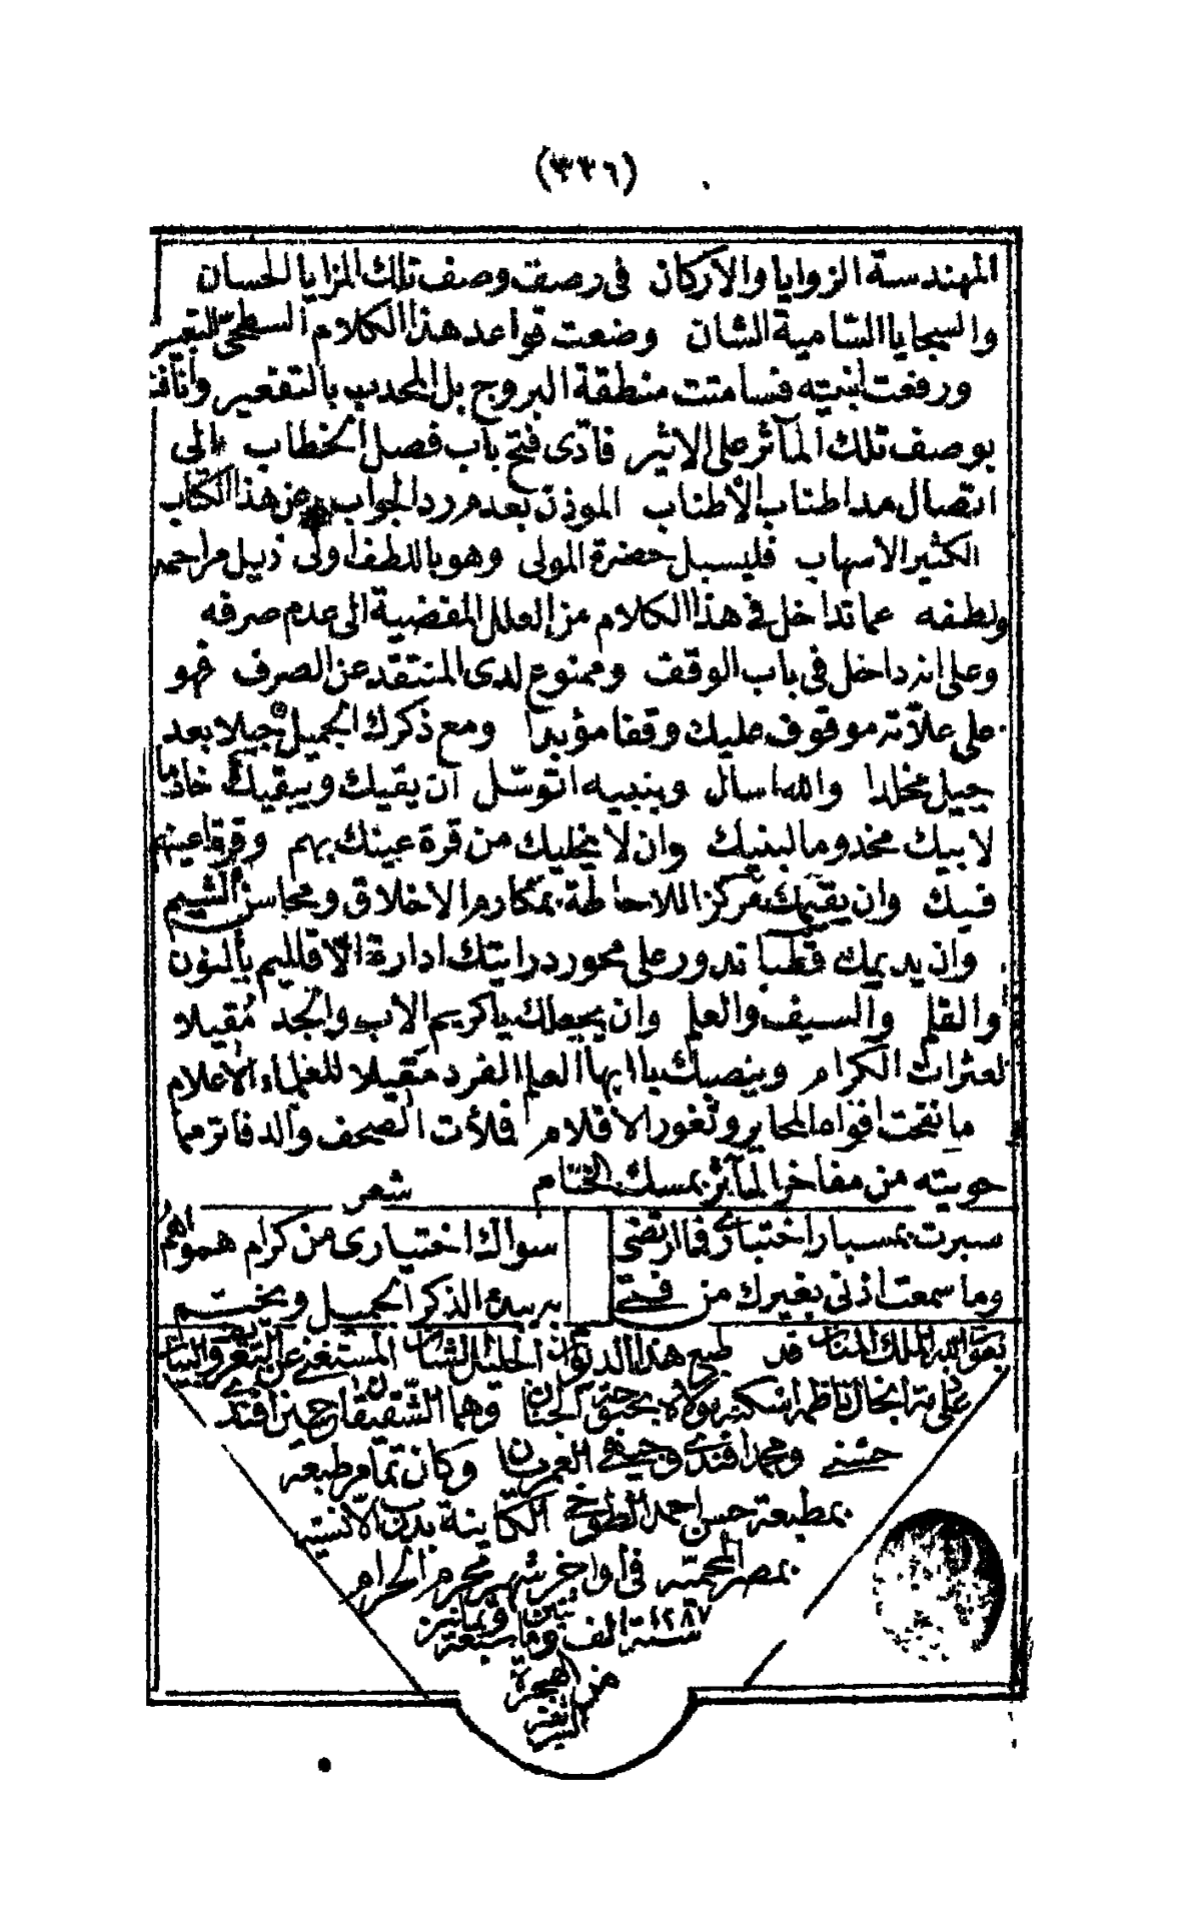 (٣٣٦)
المهندسة الزوايا والاركان فى رصف وصف تلك المزايا الحسان
والسجايا السّامية الشان وضعت قواعد هذا الكلام السطحىّ التعبير
ورفعت ابنيته فسامتت منطقة البروج بل المحدب بالتقعير وأنافت
بوصف تلك المآثر على الاثير فادّى فتح باب فصل الخطاب الى
اتصال مد اطناب الأطناب الموذن بعدم رد الجواب عن هذا الكتاب
الكثير الاسهاب فليسبل حضرة المولى وهو باللطف اولى ذيل مراحمه
ولطفه عما تداخل فى هذا الكلام من العلل المقضية الى عدم صرفه
وعلى انه داخل فى باب الوقف وممنوع لدى المنتقد عن الصرف فهو
على علاّته موقوف عليك وقفا مؤبدا ومع ذكرك الجميل جيلا بعد
جيل مخلدا والله اسال وبنبيه اتوسّل ان يقيك ويبقيك خادما
لابيك مخدوما لبنيك وان لا يخليك من قرة عينك بهم وقرة اعينهم
فيك وان يقيمك مركز اللاحاطة بمكارم الاخلاق ومحاسن الشيم
وان يديمك قطبا تدور على محور درايتك ادارة الاقاليم بالنون
والقلم والسيف والعلم وان يجعلك ياكريم الاب والجد مُقيلا
لعثرات الكرام وينصبك يا ايها العلم الفرد مَقيلا للعلماء الاعلام
ما نفحت افواه المحابر وثغور الاقلام فلأت الصحف والدفاتر مما
حويته من مفاخر المآثر بمسك الختام شعر
سبرت بمسبار اختبارى فما ارتضى سواك اختيارى من كرام همو اهم
وما سمعت اذنى بغيرك من فتى به يبدء الذكر الجميل ويختم
بعون الله الملك المنان قد طبع هذا الديوان الجليل الشان المستغنى عن التعريف والبيان
على ذمة انجال ناظمه اسكنه مولاه بحبوحة الجنان وهما الشقيقان حسن افندى
حسنى ومحمد افندى وجيهى العمريان وكان تمام طبعه
بمطبعة حسن احمد الطوخى الكاينة بدرب الانسيه
بمصر المحميّه فى اواخر شهر محرم الحرام
سنة ١٢٨٧ الف ومايتين وسبعة وثمانين
من الهجرة
الشريفة